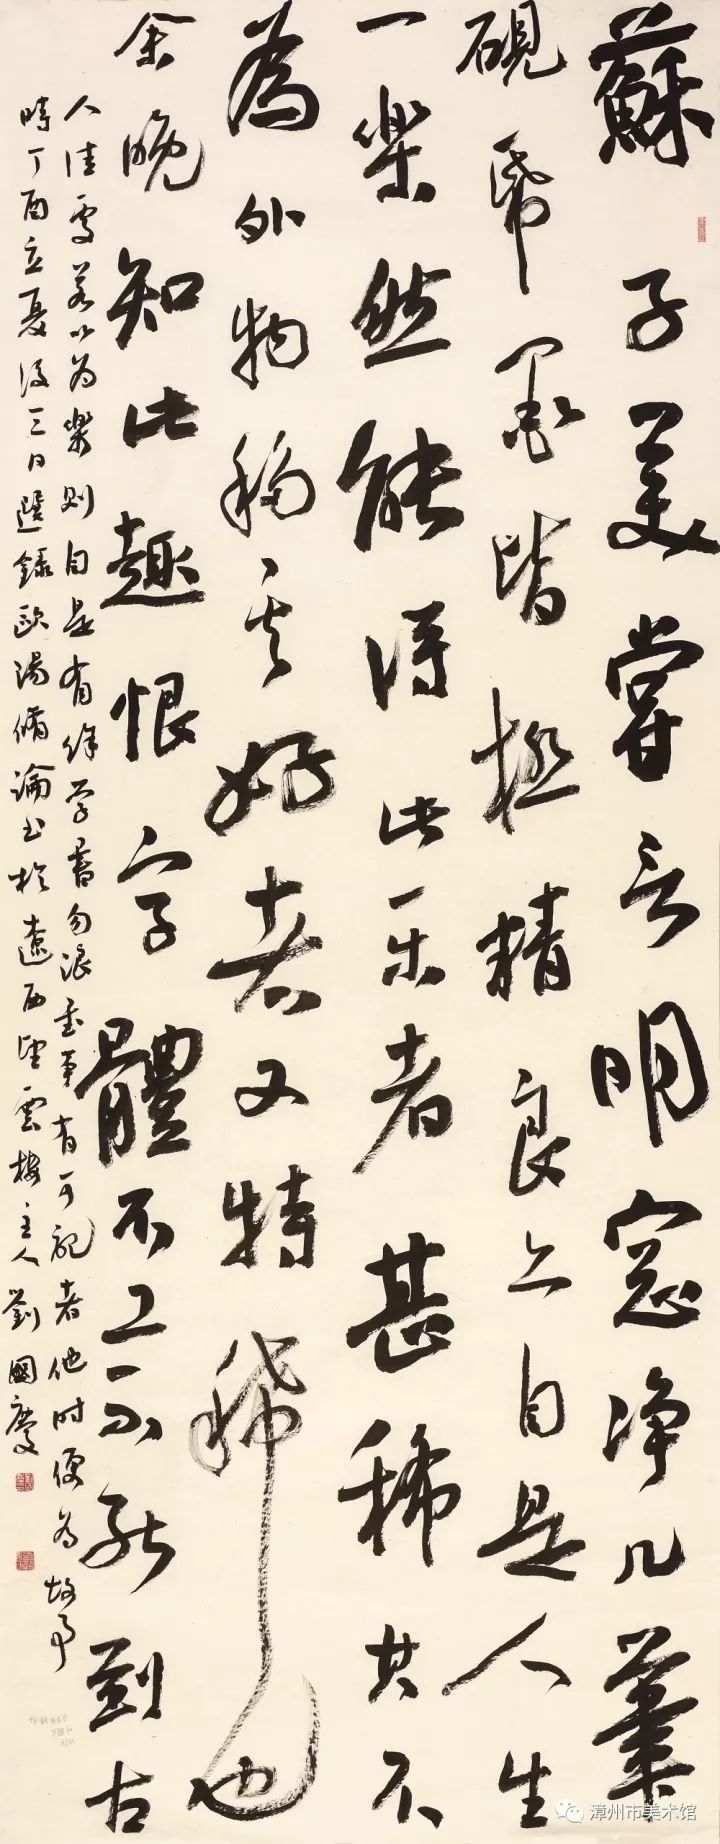 蘇子美嘗言明窓净几筆
硯帋墨皆極精良亦自是人生
一樂然能得此乐者甚稀其不
為外物移其好者又特稀也
余晚知此趣恨字體不工不能到古
人佳處若以為樂則自是有餘学書勿浪書事有可記者他时便為故事
時丁酉立夏後三日選録歐陽脩論書於遼西望雲樓主人劉國慶
漳州市美术馆